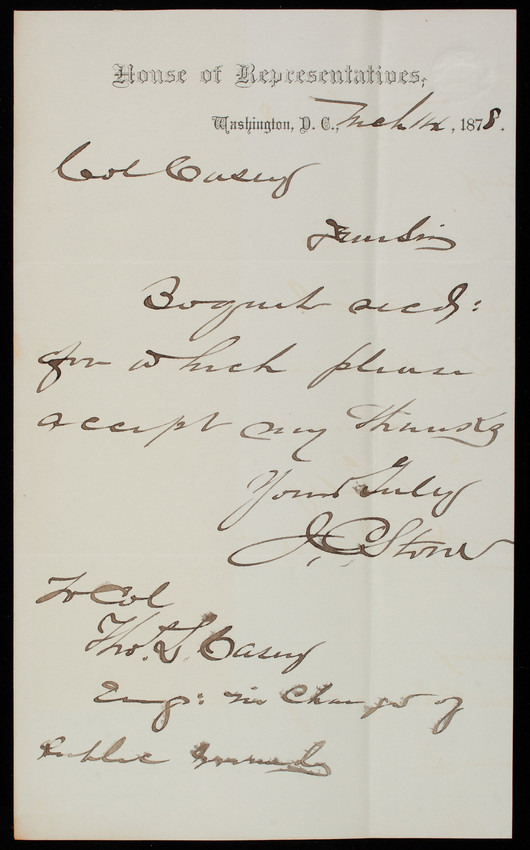 House of Representatives,
Washington, D. C., Mch 14, 1878.
Col Casey
Dear Sir
Boquet recd:
for which please
accept my thanks
Yours Truly
J. C. Stone
To Col
Tho. L. Casey
Eng: in Charge of
Public Grounds